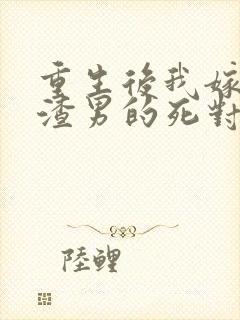 重生後我嫁
渣男的死對
陸鯉